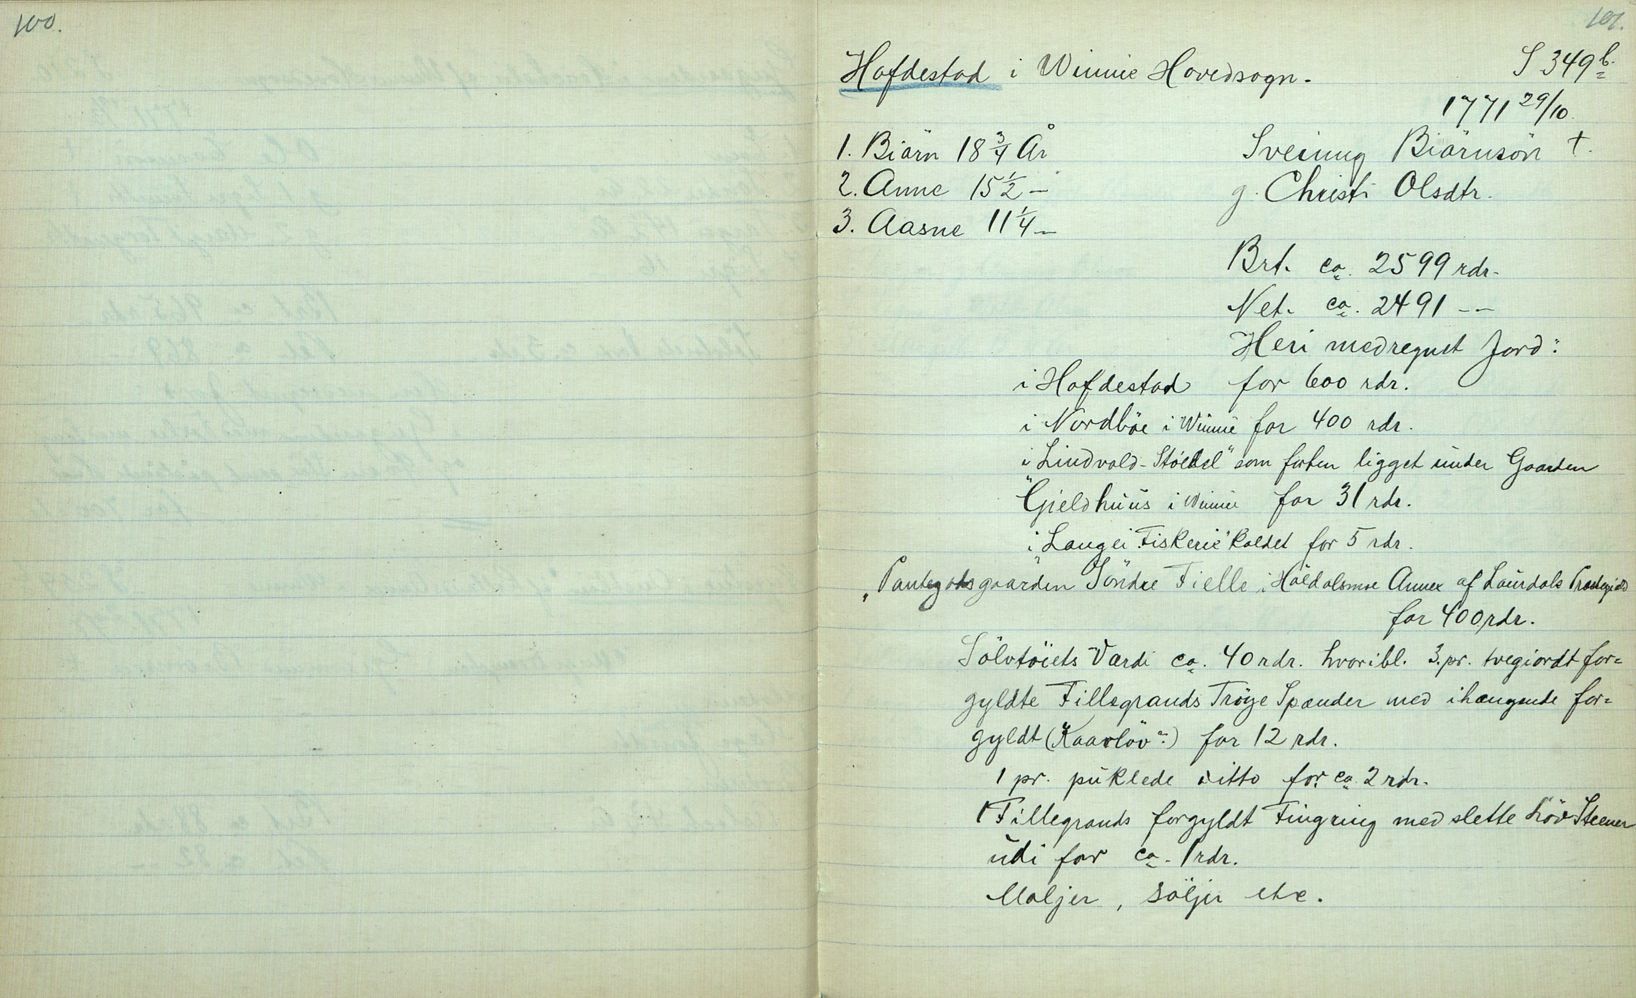 100.
101.
Hofdestad i Winnie Hovedsogn. S 349 b.
1771 29/10.
1. Biörn 18 3/4 År Sveinug Biörnsön †.
2. Anne 15 1/2 — g. Christi Olsdtr.
3. Aasne 11 1/4 —
Brt. ca. 2599 rdr.
Net. ca. 2491 --
Heri medregnet Jord:
i Hofdestad for 600 rdr.
i Nordböe i Winnie for 400 rdr.
i "Lindvold-Stöedel" som forhen ligget under Gaarden
Gieldhuus i Winnie for 31 rdr.
i "Langei Fiskerie" kaldet for 5 rdr.
"Pantegodsgaarden Söndre Fielle i Höidalsmoe Annex af Laurdals Præstegield
for 400 rdr.
Sölvtöiets Værdi ca. 40 rdr. hvoribl. 3. pr. tvegiordt for=
gyldte Fillegrands Tröye Spænder med ihængende for=
gyldt (Kaarlöv) for 12 rdr.
1 pr. puklede ditto for ca. 2 rdr.
1 Fillegrands forgyldt Fingring med slette Steener
udi for ca. 1 rdr.
Maljer, Söljer etc.